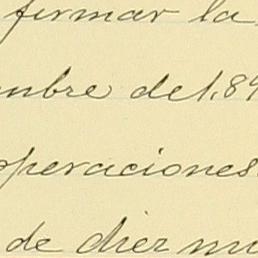 firmar la
mbre de 1.89
operaciones
de diez mi